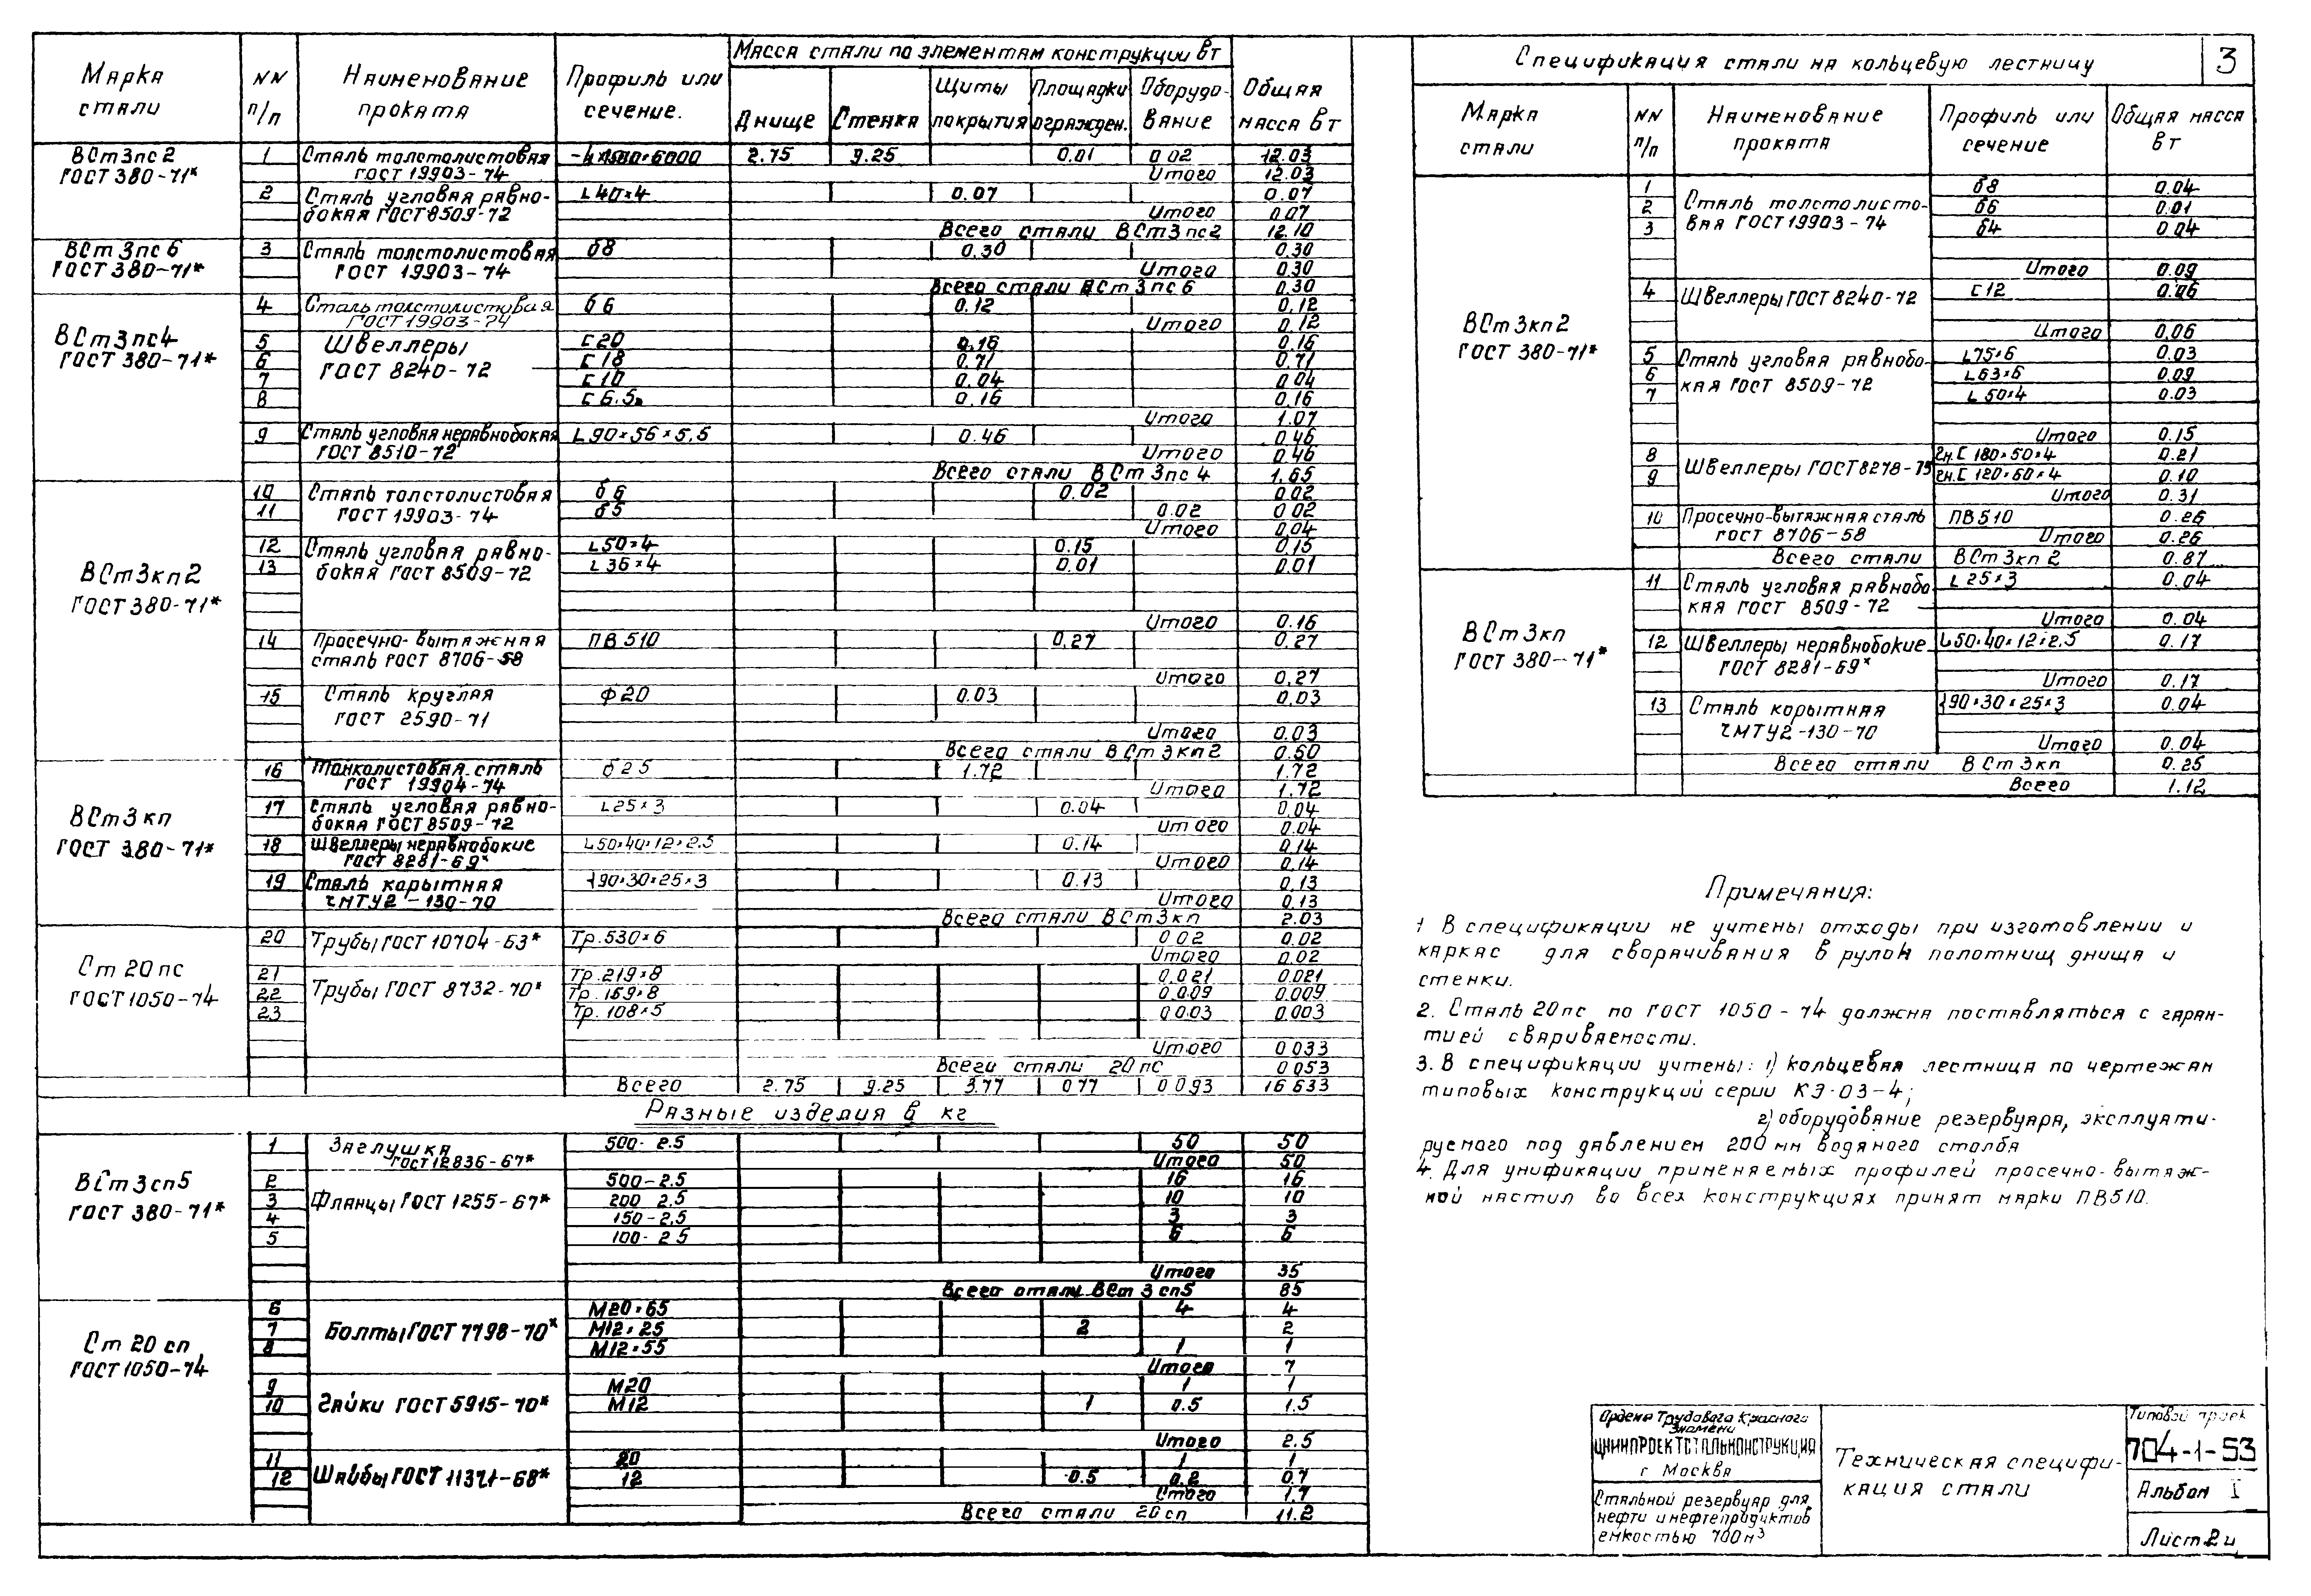 Марка стали | NN п/п | Наименование проката | Профиль или сечение. | Масса стали по элементам конструкции в т | Общая масса в т
Днище | Стенка | Щиты покрытия | Площадки огражден. | Оборудование
ВСт3пс2 ГОСТ 380-71* | 1 | Сталь толстолистовая ГОСТ 19903-74 | 2.75 | 9.25 | 0.01 | 0 02 | 12.03
Итого 12.03
2 | Сталь угловая равнобокая ГОСТ 8509-72 | L40×4 | 0.07 | 0.07
Итого 0.07
Всего стали ВСт3пс2 12.10
ВСт3пс6 ГОСТ 380-71* | 3 | Сталь толстолистовая ГОСТ 19903-74 | б8 | 0.30 | 0.30
Итого 0.30
Всего стали ВСт3пс6 0.30
ВСт3пс4 ГОСТ 380-71* | 4 | Сталь толстолистовая ГОСТ 19903-74 | б6 | 0.12 | 0.12
Итого 0.12
5 | Швеллеры ГОСТ 8240-72 | С20 | 0.16 | 0.16
6 | С18 | 0.71 | 0.71
7 | С10 | 0.04 | 0.04
8 | С6.5 | 0.16 | 0.16
Итого 1.07
9 | Сталь угловая неравнобокая ГОСТ 8510-72 | L90×56×5.5 | 0.46 | 0.46
Итого 0.46
Всего стали ВСт3пс4 1.65
ВСт3кп2 ГОСТ 380-71* | 10 | Сталь толстолистовая ГОСТ 19903-74 | б6 | 0.02 | 0.02
11 | б5 | 0.02 | 0 02
Итого 0.04
12 | Сталь угловая равнобокая ГОСТ 8509-72 | L50×4 | 0.15 | 0.15
13 | L36×4 | 0.01 | 0.01
Итого 0.16
14 | Просечно-вытяжная сталь ГОСТ 8706-58 | ПВ510 | 0.27 | 0.27
Итого 0.27
15 | Сталь круглая ГОСТ 2590-71 | ф20 | 0.03 | 0.03
Итого 0.03
Всего стали ВСт3кп2 0.50
ВСт3кп ГОСТ 380-71* | 16 | Тонколистовая сталь ГОСТ 19904-74 | б25 | 1.72 | 1.72
Итого 1.72
17 | Сталь угловая равнобокая ГОСТ 8509-72 | L25×3 | 0.04 | 0.04
Итого 0.04
18 | Швеллеры неравнобокие ГОСТ 8281-69* | L50×40×12×2.5 | 0.14 | 0.14
Итого 0.14
19 | Сталь корытная ЧМТУ2-130-70 | 90×30×25×3 | 0.13 | 0.13
Итого 0.13
Всего стали ВСт3кп 2.03
Ст 20пс ГОСТ 1050-74 | 20 | Трубы ГОСТ 10704-63* | Тр.530×6 | 0 02 | 0.02
Итого 0.02
21 | Трубы ГОСТ 8732-70* | Тр.219×8 | 0.021 | 0.021
22 | Тр.159×8 | 0.009 | 0.009
23 | Тр.108×5 | 0 003 | 0.003
Итого 0 033
Всего стали 20 пс 0 053
Всего | 2.75 | 9.25 | 3.77 | 0 77 | 0 093 | 16 633
Разные изделия в кг
ВСт3сп5 ГОСТ 380-71* | 1 | Заглушка ГОСТ 12836-67* | 500-2.5 | 50 | 50
Итого 50
2 | Фланцы ГОСТ 1255-67* | 500-2.5 | 16 | 16
3 | 200 2.5 | 10 | 10
4 | 150-2.5 | 3 | 3
5 | 100-2 5 | 6 | 6
Итого 35
Всего стали ВСт3сп5 85
Ст 20 сп ГОСТ 1050-74 | 6 | Болты ГОСТ 7798-70* | М20×65 | 4 | 4
7 | М12×25 | 2 | 2
8 | М12×55 | 1 | 1
Итого 7
9 | Гайки ГОСТ 5915-70* | М20 | 1 | 1
10 | М12 | 1 | 0.5 | 1.5
Итого 2.5
11 | Шайбы ГОСТ 11371-68* | 20 | 1 | 1
12 | 12 | 0.5 | 0.2 | 0.7
Итого 1.7
Всего стали 20сп 11.2
Спецификация стали на кольцевую лестницу 3
Марка стали | NN п/п | Наименование проката | Профиль или сечение | Общая масса в т
ВСт3кп2 ГОСТ 380-71* | 1 | Сталь толстолистовая ГОСТ 19903-74 | б8 | 0.04
2 | б6 | 0.01
3 | б4 | 0.04
Итого 0.09
4 | Швеллеры ГОСТ 8240-72 | С12 | 0.06
Итого 0.06
5 | Сталь угловая равнобокая ГОСТ 8509-72 | L75×6 | 0.03
6 | L63×6 | 0.09
7 | L50×4 | 0.03
Итого 0.15
8 | Швеллеры ГОСТ 8278-75 | гн.С 180×50×4 | 0.21
9 | гн.С 120×60×4 | 0.10
Итого 0.31
10 | Просечно-вытяжная сталь ГОСТ 8706-58 | ПВ510 | 0.26
Итого 0.26
Всего стали ВСт3кп2 0.87
ВСт3кп ГОСТ 380-71* | 11 | Сталь угловая равнобокая ГОСТ 8509-72 | L25×3 | 0.04
Итого 0.04
12 | Швеллеры неравнобокие ГОСТ 8281-69* | L50×40×12×2.5 | 0.17
Итого 0.17
13 | Сталь корытная ЧМТУ2-130-70 | 90×30×25×3 | 0.04
Итого 0.04
Всего стали ВСт3кп 0.25
Всего 1.12
Примечания:
1 В спецификации не учтены отходы при изготовлении и
каркас для сворачивания в рулон полотнищ днища и
стенки.
2. Сталь 20пс по ГОСТ 1050-74 должна поставляться с гаран-
тией свариваемости.
3. В спецификации учтены: 1) кольцевая лестница по чертежам
типовых конструкций серии КЭ-03-4;
2) оборудование резервуара, эксплуати-
руемого под давлением 200 мм водяного столба
4. Для унификации применяемых профилей просечно-вытяж-
ной настил во всех конструкциях принят марки ПВ510.
Ордена Трудового Красного
Знамени
ЦНИИПРОЕКТСТАЛЬКОНСТРУКЦИЯ
г Москва
Стальной резервуар для
нефти и нефтепродуктов
емкостью 700 м³
Техническая специфи-
кация стали
Типовой проек
704-1-53
Альбом I
Лист 2и